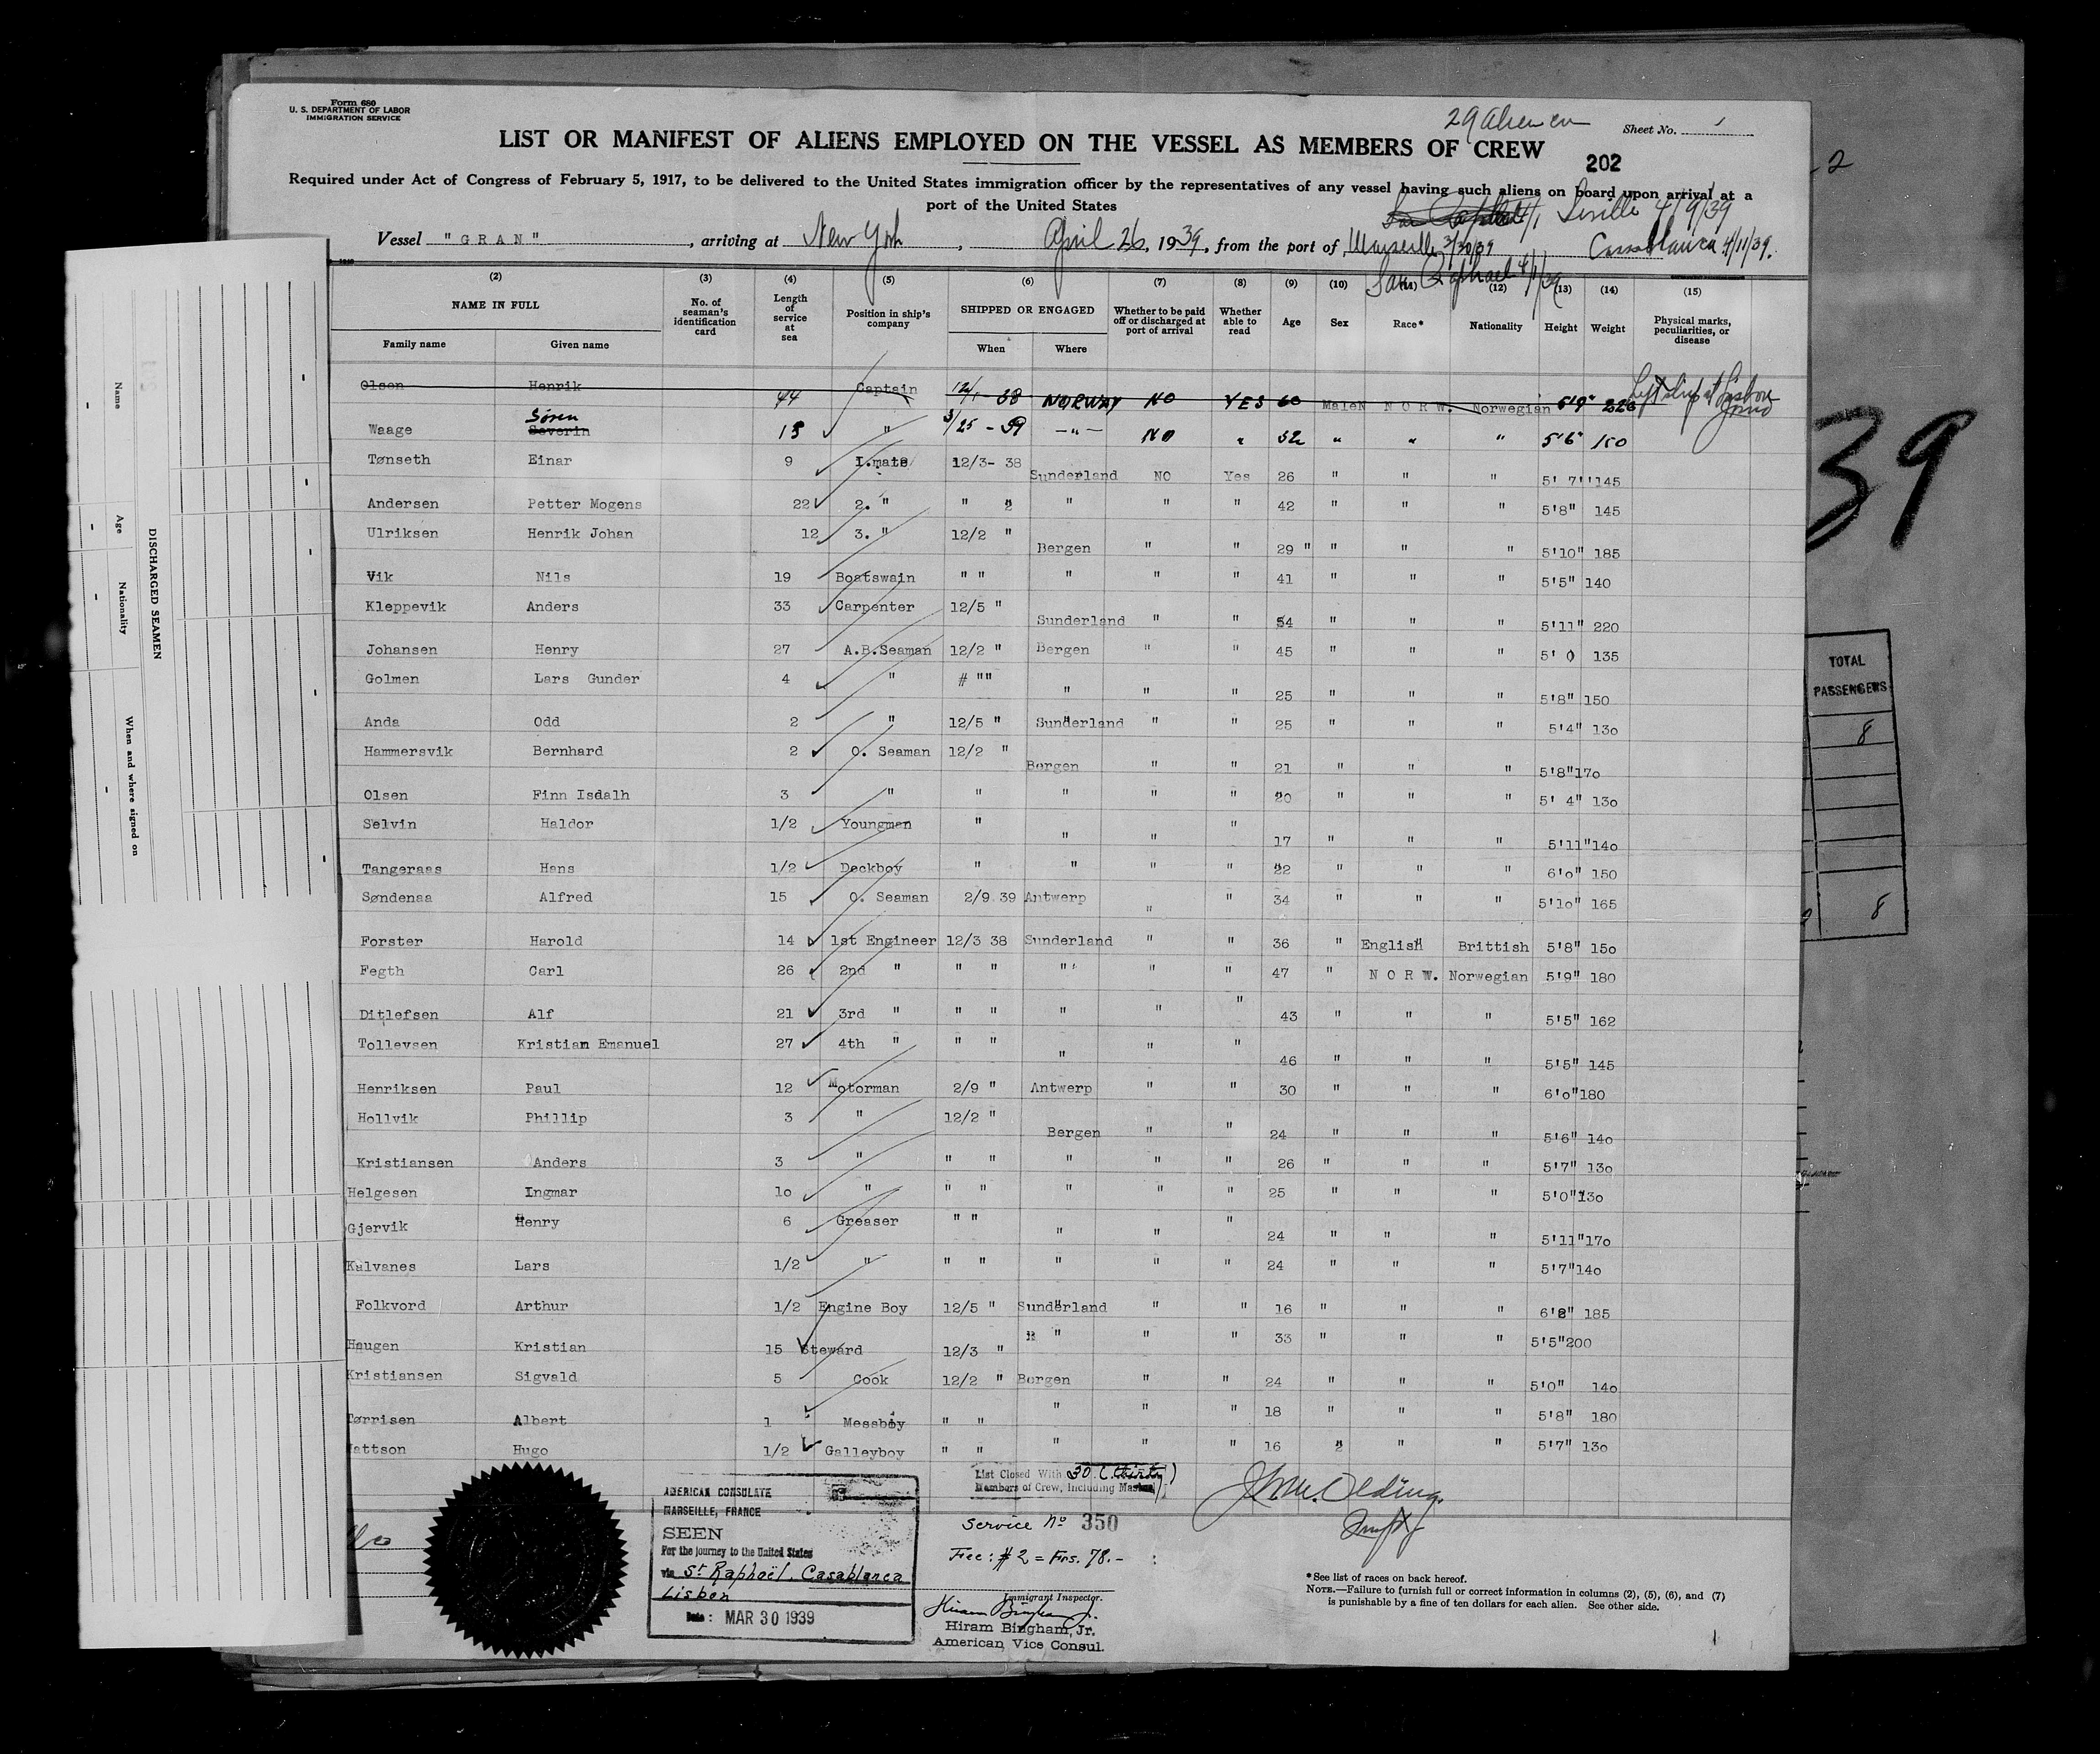 Form 680
U. S. DEPARTMENT OF LABOR
IMMIGRATION SERVICE
Sheet No. 1
LIST OR MANIFEST OF ALIENS EMPLOYED ON THE VESSEL AS MEMBERS OF CREW
202
Required under Act of Congress of February 5, 1917, to be delivered to the United States immigration officer by the representatives of any vessel having such aliens on board upon arrival at a
port of the United States
Seville 4/9/39
Vessel "GRAN", arriving at New York, April 26, 1939, from the port of Marseille 3/30/39 Casablanca 4/11/39.
San Raphael 4/1/39
(2) (3) (4) (5) (6) (7) (8) (9) (10) (11) (12) (13) (14) (15)
NAME IN FULL No. of seaman's identification card Length of service at sea Position in ship's company SHIPPED OR ENGAGED Whether to be paid off or discharged at port of arrival Whether able to read Age Sex Race* Nationality Height Weight Physical marks, peculiarities, or disease
Family name Given name When Where
Olsen Henrik 44 Captain 12/1-38 NORWAY NO YES 60 Male N O R W. Norwegian 5'9" 226 Left ship at Lisbon
Søren
Waage Severin 15 " 3/25-39 -"- NO " 52 " " " 5'6" 150
Tønseth Einar 9 I.mate 12/3- 38 Sunderland NO Yes 26 " " " 5' 7" 145
Andersen Petter Mogens 22 2. " " " " " " 42 " " " 5'8" 145
Ulriksen Henrik Johan 12 3. " 12/2 " Bergen " " 29 " " " " 5'10" 185
Vik Nils 19 Boatswain " " " " " 41 " " " 5'5" 140
Kleppevik Anders 33 Carpenter 12/5 " Sunderland " " 54 " " " 5'11" 220
Johansen Henry 27 A.B.Seaman 12/2 " Bergen " " 45 " " " 5' 0 135
Golmen Lars Gunder 4 " # "" " " " 25 " " " 5'8" 150
Anda Odd 2 " 12/5 " Sunderland " " 25 " " " 5'4" 130
Hammersvik Bernhard 2 O. Seaman 12/2 " Bergen " " 21 " " " 5'8" 170
Olsen Finn Isdalh 3 " " " " " 20 " " " 5' 4" 130
Selvin Haldor 1/2 Youngman " " " " 17 " " " 5'11" 140
Tangeraas Hans 1/2 Deckboy " " " " 22 " " " 6'0" 150
Søndenaa Alfred 15 O. Seaman 2/9.39 Antwerp " " 34 " " " 5'10" 165
Forster Harold 14 1st Engineer 12/3 38 Sunderland " " 36 " English Brittish 5'8" 150
Fegth Carl 26 2nd " " " " " " 47 " N O R W. Norwegian 5'9" 180
Ditlefsen Alf 21 3rd " " " " " " 43 " " " 5'5" 162
Tollevsen Kristian Emanuel 27 4th " " " " " " 46 " " " 5'5" 145
Henriksen Paul 12 Motorman 2/9 " Antwerp " " 30 " " " 6'0" 180
Hollvik Phillip 3 " 12/2 " Bergen " " 24 " " " 5'6" 140
Kristiansen Anders 3 " " " " " " 26 " " " 5'7" 130
Helgesen Ingmar 10 " " " " " " 25 " " " 5'0" 130
Gjervik Henry 6 Greaser " " " " " 24 " " " 5'11" 170
Kalvanes Lars 1/2 " " " " " " 24 " " " 5'7" 140
Folkvord Arthur 1/2 Engine Boy 12/5 " Sunderland " " 16 " " " 6'2" 185
Haugen Kristian 15 Steward 12/3 " " " " 33 " " " 5'5" 200
Kristiansen Sigvald 5 Cook 12/2 " Bergen " " 24 " " " 5'0" 140
Tørrisen Albert 1 Messboy " " " " " 18 " " " 5'8" 180
attson Hugo 1/2 Galleyboy " " " " " 16 " " " 5'7" 130
List Closed With 30 (thirty)
Members of Crew, Including Master
AMERICAN CONSULATE
MARSEILLE, FRANCE
SEEN
For the journey to the United States
via St Raphaël. Casablanca
Lisbon
Date: MAR 30 1939
Service No 350
Fee: $2 = Frs. 78.-
Immigrant Inspector.
Hiram Bingham Jr.
Hiram Bingham, Jr.
American Vice Consul.
*See list of races on back hereof.
NOTE.—Failure to furnish full or correct information in columns (2), (5), (6), and (7)
is punishable by a fine of ten dollars for each alien. See other side.
DISCHARGED SEAMEN
Name
Age
Nationality
When and where signed on
2
39
TOTAL
PASSENGERS
8
8